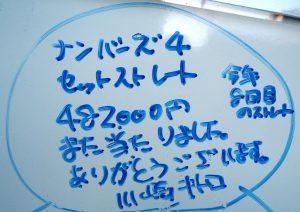 ナンバーズ4
セットストレート
482000円
また当たりました。
ありがとうございます。
川崎
今年
8回目
のストレート